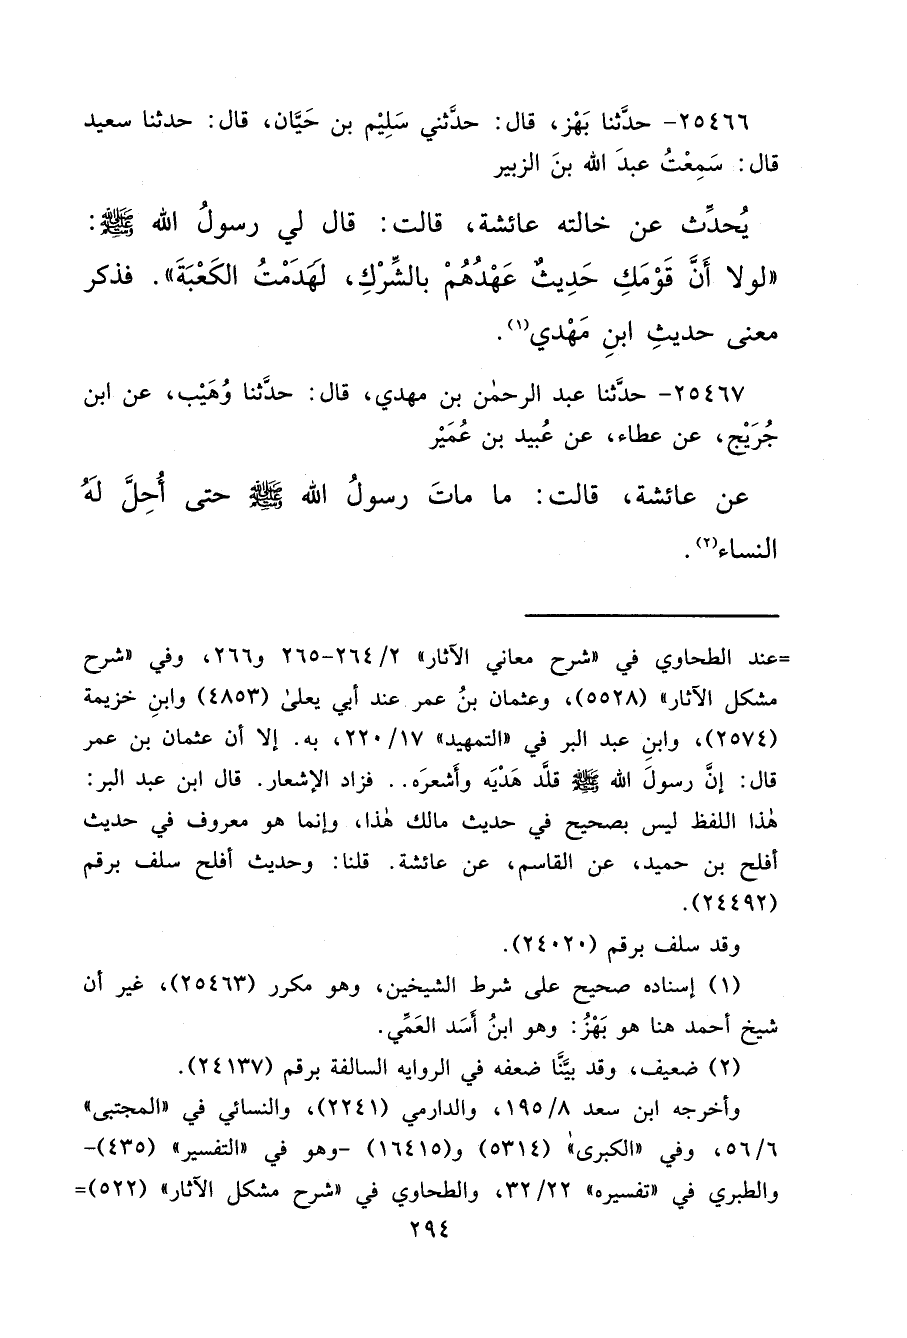 ٢٥٤٦٦- حدَّثنا بَهْز، قال: حدَّثني سَلِيْم بن حَيَّان، قال: حدثنا سعيد
قال: سَمِعْتُ عبدَ الله بنَ الزبير
يُحدِّث عن خالته عائشة، قالت: قال لي رسولُ الله ﷺ:
«لولا أَنَّ قَوْمَكِ حَدِيثٌ عَهْدُهُمْ بالشِّرْكِ، لَهَدَمْتُ الكَعْبَةَ». فذكر
معنى حديثِ ابنِ مَهْدي(١).
٢٥٤٦٧- حدَّثنا عبد الرحمٰن بن مهدي، قال: حدَّثنا وُهَيْب، عن ابن
جُرَيْج، عن عطاء، عن عُبيد بن عُمَيْر
عن عائشة، قالت: ما ماتَ رسولُ الله ﷺ حتى أُحِلَّ لَهُ
النساء(٢).
=عند الطحاوي في «شرح معاني الآثار» ٢/ ٢٦٤-٢٦٥ و٢٦٦، وفي «شرح
مشكل الآثار» (٥٥٢٨)، وعثمان بنُ عمر عند أبي يعلىٰ (٤٨٥٣) وابنِ خزيمة
(٢٥٧٤)، وابنِ عبد البر في «التمهيد» ١٧/ ٢٢٠، به. إلا أن عثمان بن عمر
قال: إنَّ رسولَ الله ﷺ قلَّد هَدْيَه وأَشعرَه.. فزاد الإشعار. قال ابن عبد البر:
هٰذا اللفظ ليس بصحيح في حديث مالك هٰذا، وإنما هو معروف في حديث
أفلح بن حميد، عن القاسم، عن عائشة. قلنا: وحديث أفلح سلف برقم
(٢٤٤٩٢).
وقد سلف برقم (٢٤٠٢٠).
(١) إسناده صحيح على شرط الشيخين، وهو مكرر (٢٥٤٦٣)، غير أن
شيخ أحمد هنا هو بَهْزُ: وهو ابنُ أَسَد العَمِّي.
(٢) ضعيف، وقد بيَّنَّا ضعفه في الروايه السالفة برقم (٢٤١٣٧).
وأخرجه ابن سعد ٨/ ١٩٥، والدارمي (٢٢٤١)، والنسائي في «المجتبى»
٦/ ٥٦، وفي «الكبرىٰ» (٥٣١٤) و(١٦٤١٥) -وهو في «التفسير» (٤٣٥)-
والطبري في «تفسيره» ٢٢/ ٣٢، والطحاوي في «شرح مشكل الآثار» (٥٢٢)=
٢٩٤